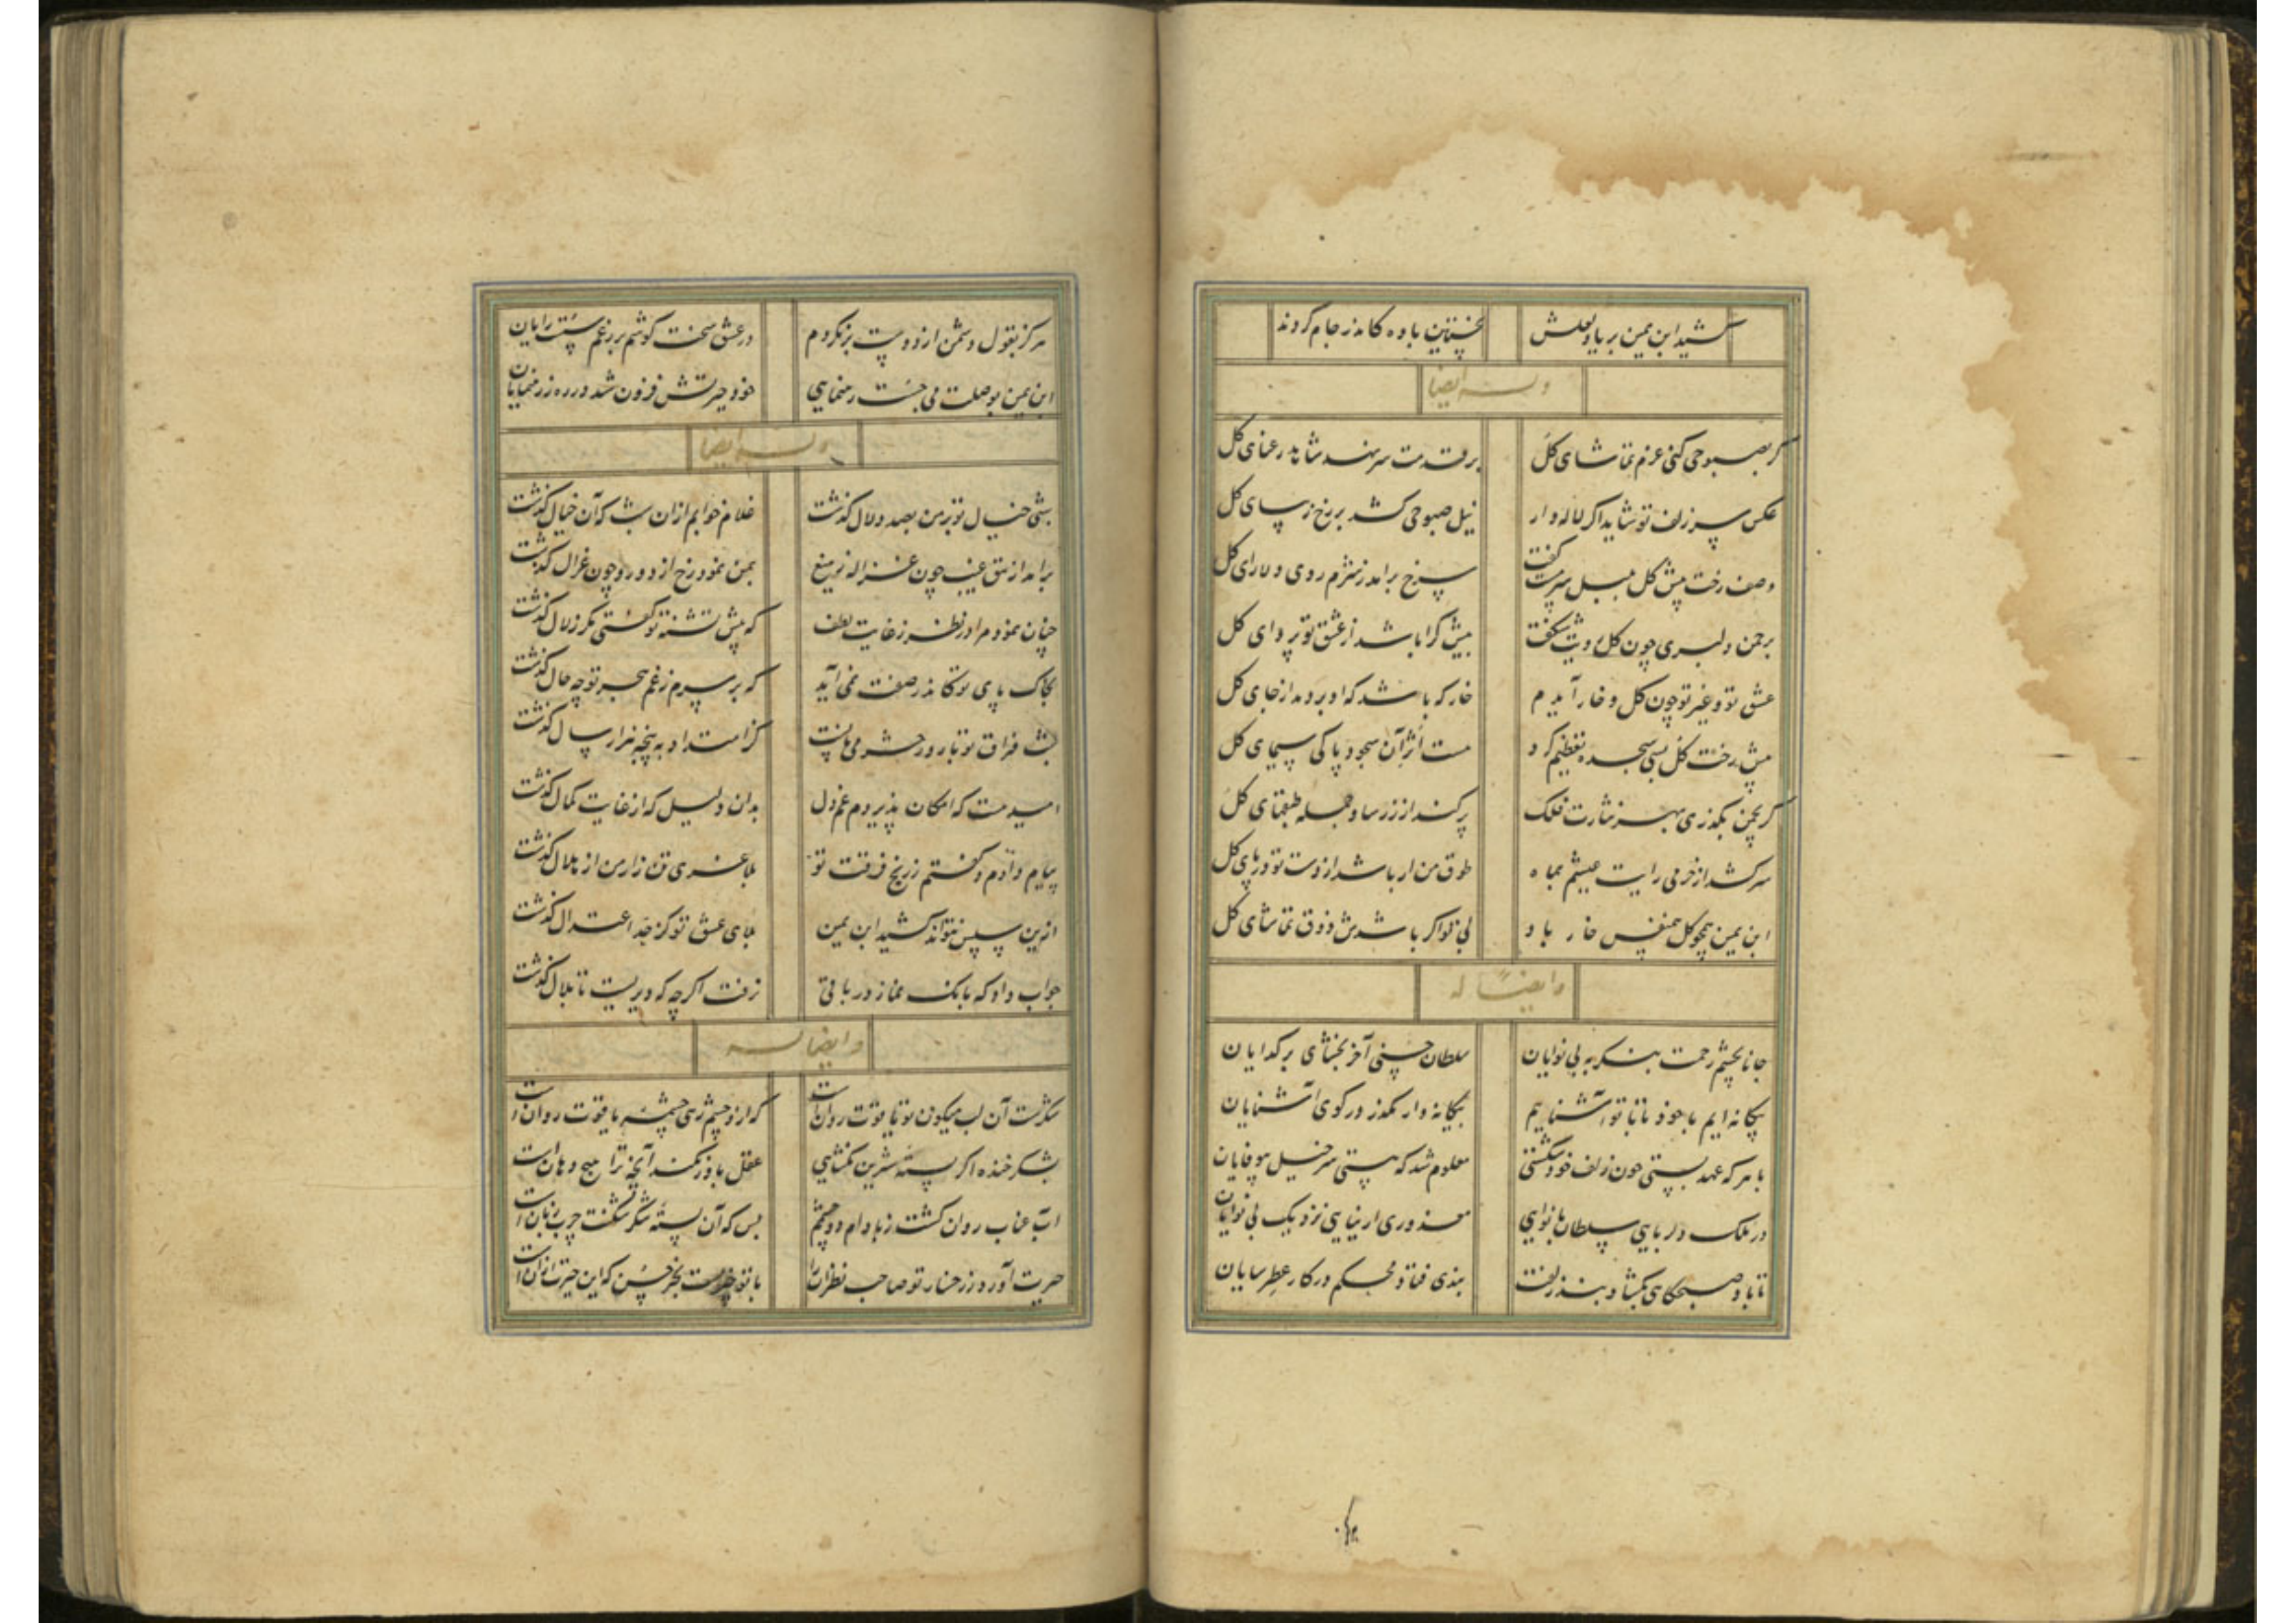 کشید ابن یمین بر یاد لعلش نخستین باده کاندر جام کردند
وله ایضا
گر بصبوحی کنی عزم تماشای گل بر قدمت سر نهد شاید رعنای گل
عکس سر زلف تو شاید اگر لاله وار نیل صبوحی کشد بر رخ زیبای گل
وصف رخت پیش گل بلبل سرمست گفت سرخ برآمد ز شرم روی دلارای گل
بر چمن دلبری چون گل رویت شکفت بیش کرا باشد از عشق تو پروای گل
عشق تو و غیر تو چون گل و خار آیدم خار که باشد که او بر دمد از جای گل
پیش رخت گل بسی سجده تعظیم کرد هست اثر آن سجود پاکی سیمای گل
گر بچمن بگذری بهر نثارت فلک پر کند از زر ساو جمله طبقهای گل
سر کشد از خرمی رایت عیشم بماه طوق من ار باشد از دست تو در پای گل
ابن یمین همچو گل همنفس خار باد بی تو اگر باشدش ذوق تماشای گل
وایضا له
جانا بچشم رحمت بنگر به بی نوایان سلطان حسنی آخر بخشای بر گدایان
بیگانه ایم با خود تا با تو آشناییم بیگانه وار مگذر در کوی آشنایان
با هر که عهد بستی چون زلف خود شکستی معلوم شد که هستی سرخیل بیوفایان
در ملک دلربایی سلطان با نوایی معذوری ار نیایی نزدیک بی نوایان
تا باد صبحگاهی بگشاد بند زلفت بندی فتاد محکم در کار عطر سایان
هرگز بقول دشمن از دوست برنگردم در عشق سخت کوشم بر رغم سست رایان
ابن یمین بوصلت می جست رهنمایی خود حیرتش فزون شد در ره ز رهنمایان
وله ایضا
شبی خیال تو بر من بصد دلال گذشت غلام خوابم ازان شب که آن خیال گذشت
برآمد از تتق غیب چون غزاله ز میغ بمن نمود رخ از دور و چون غزال گذشت
چنان نمود مرا در نظر ز غایت لطف که پیش تشنه تو گفتی مگر زلال گذشت
بخاک پای تو کاندر صفت نمی آید که بر سرم ز غم هجر تو چه حال گذشت
شب فراق تو تا روز حشر می مانست کز امتداد به پنجه هزار سال گذشت
امید هست که امکان پذیردم غم دل بدان دلیل که از غایت کمال گذشت
پیام دادم و گفتم ز رنج فرقت تو بلاغری تن زار من از هلال گذشت
ازین سپس نتواند کشید ابن یمین بلای عشق تو کز حد اعتدال گذشت
جواب داد که بانک نماز در باقی نرفت اگر چه که دیریست تا بلال گذشت
وایضا له
شکرست آن لب میگون تو یا قوت روانست که ازو چشم رهی چشمه یاقوت روان است
بشکر خنده اگر پسته شیرین نگشایی عقل باور نکند آنچه ترا هیچ دهان است
آب عناب روان گشت ز بادام دو چشمم بس که آن پسته شکر شکنت چرب زبان است
حیرت آورد ز رخسار تو صاحب نظران را با تو خود نیست بجز حسن که این حیرت ازان است